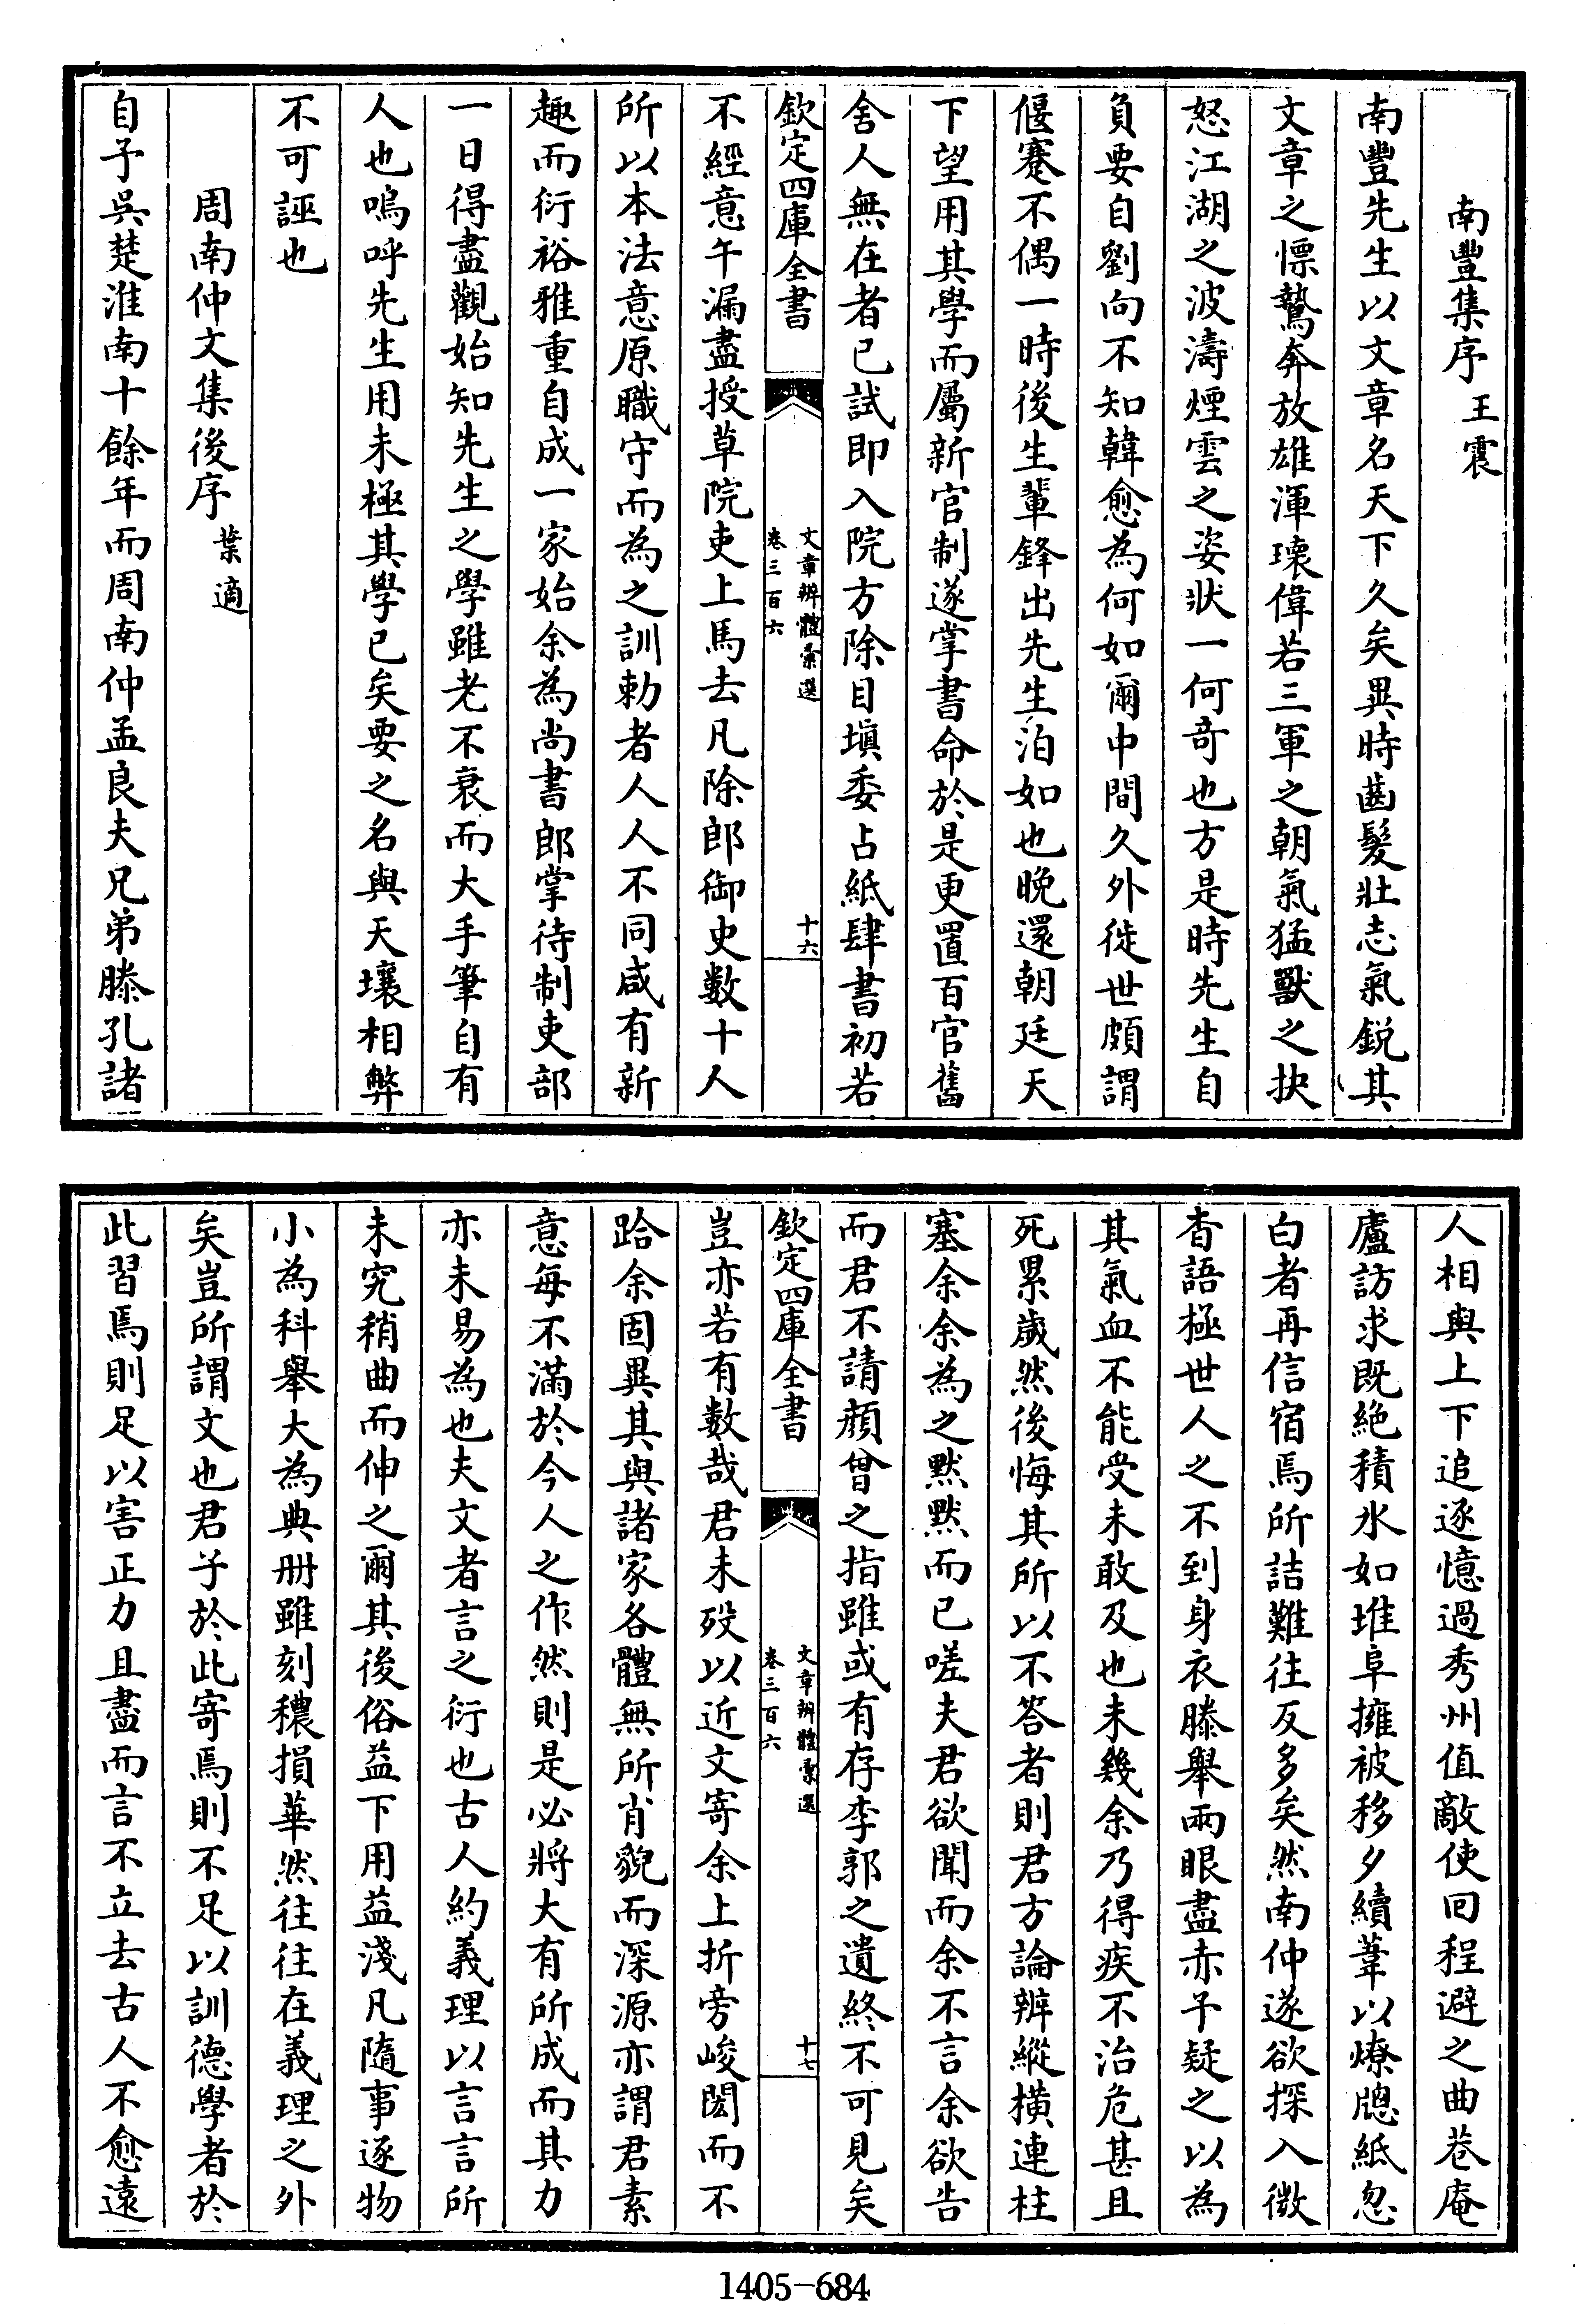 南豐集序 王震
南豐先生以文章名天下久矣異時齒髮壯志氣鋭其
文章之慓鷙奔放雄渾瓌偉若三軍之朝氣猛獸之抉
怒江湖之波濤煙雲之姿狀一何奇也方是時先生自
負要自劉向不知韓愈為何如爾中間久外徙世頗謂
偃蹇不偶一時後生輩鋒出先生泊如也晚還朝廷天
下望用其學而屬新官制遂掌書命於是更置百官舊
舍人無在者已試即入院方除目填委占紙肆書初若
欽定四庫全書 文章辨體彙選 卷三百六 十六
不經意午漏盡授草院吏上馬去凡除郎御史數十人
所以本法意原職守而為之訓勅者人人不同咸有新
趣而衍裕雅重自成一家始余為尚書郎掌待制吏部
一日得盡觀始知先生之學雖老不衰而大手筆自有
人也嗚呼先生用未極其學已矣要之名與天壤相弊
不可誣也
周南仲文集後序 葉適
自予吳楚淮南十餘年而周南仲孟良夫兄弟滕孔諸
人相與上下追逐憶過秀州值敵使回程避之曲巷庵
廬訪求既絶積氷如堆阜擁被移夕續葦以燎牕紙忽
白者再信宿焉所詰難往反多矣然南仲遂欲探入微
杳語極世人之不到身衣滕舉兩眼盡赤予疑之以為
其氣血不能受未敢及也未幾余乃得疾不治危甚且
死累歲然後悔其所以不答者則君方論辨縱橫連柱
塞余余為之默默而已嗟夫君欲聞而余不言余欲告
而君不請顔曾之指雖或有存李郭之遺終不可見矣
欽定四庫全書 文章辨體彙選 卷三百六 十七
豈亦若有數哉君未歿以近文寄余上折旁峻閎而不
跲余固異其與諸家各體無所肖貌而深源亦謂君素
意每不滿於今人之作然則是必將大有所成而其力
亦未易為也夫文者言之衍也古人約義理以言言所
未究稍曲而伸之爾其後俗益下用益淺凡隨事逐物
小為科舉大為典册雖刻穠損華然往往在義理之外
矣豈所謂文也君子於此寄焉則不足以訓德學者於
此習焉則足以害正力且盡而言不立去古人不愈遠
1405-684